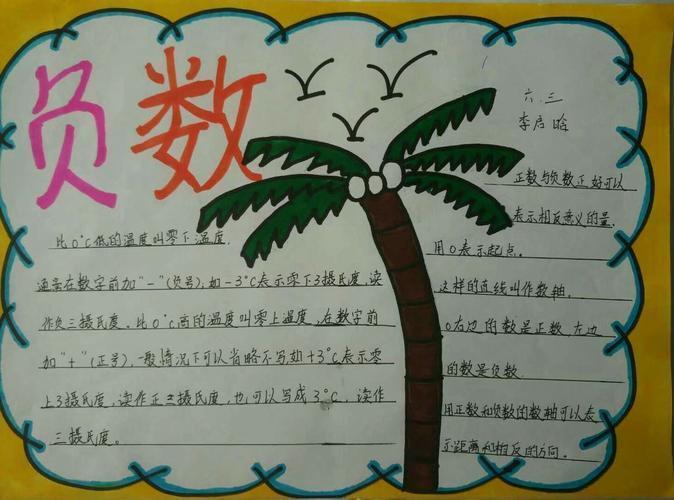 负数
六.三
李启晗
比0°C低的温度叫零下温度.
通常在数字前加"-"(负号);如-3°C表示零下3摄氏度,读
作负三摄氏度。比0°C高的温度叫零上温度,在数字前
加"+"(正号),一般情况下可以省略不写如+3°C表示零
上3摄氏度,读作正三摄氏度,也可以写成3°C,读作
三摄氏度。
正数与负数正好可以
表示相反意义的量.
用0表示起点。
这样的直线叫作数轴,
0右边的数是正数,左边
的数是负数.
用正数和负数的数轴可以表
示距离和相反的方向。